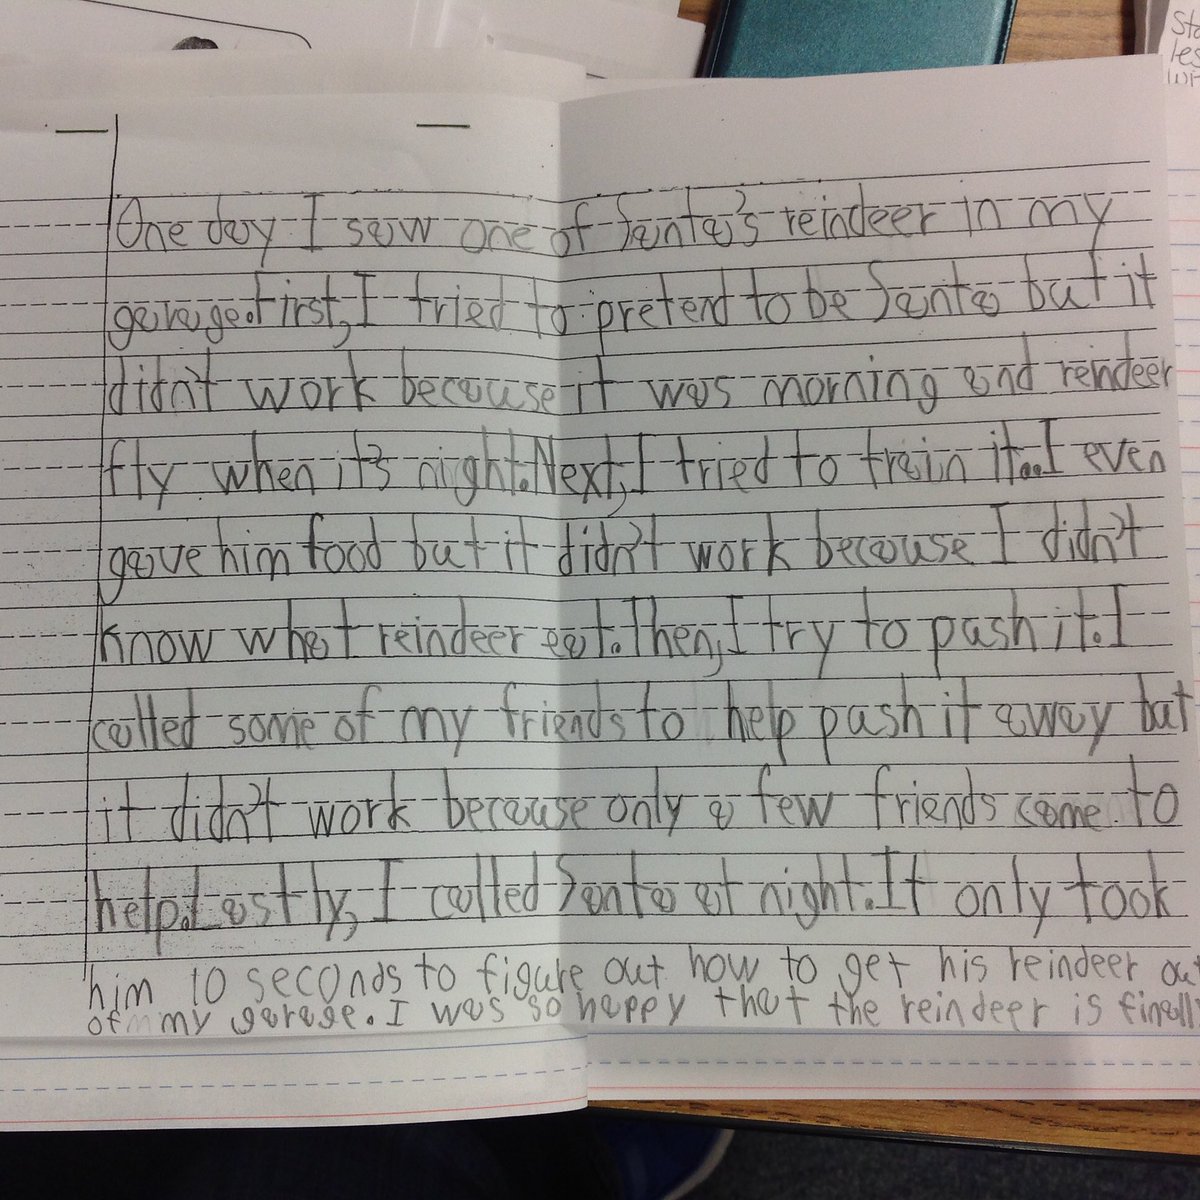 One day I saw one of Santa's reindeer in my
garage. First, I tried to pretend to be Santa but it
didn't work because it was morning and reindeer
fly when it's night. Next, I tried to train it.. I even
gave him food but it didn't work because I didn't
know what reindeer eat. Then, I try to push it. I
called some of my friends to help push it away but
it didn't work because only a few friends came to
help. Lastly, I called Santa at night. It only took
him 10 seconds to figure out how to get his reindeer out
of my garage. I was so happy that the reindeer is finally